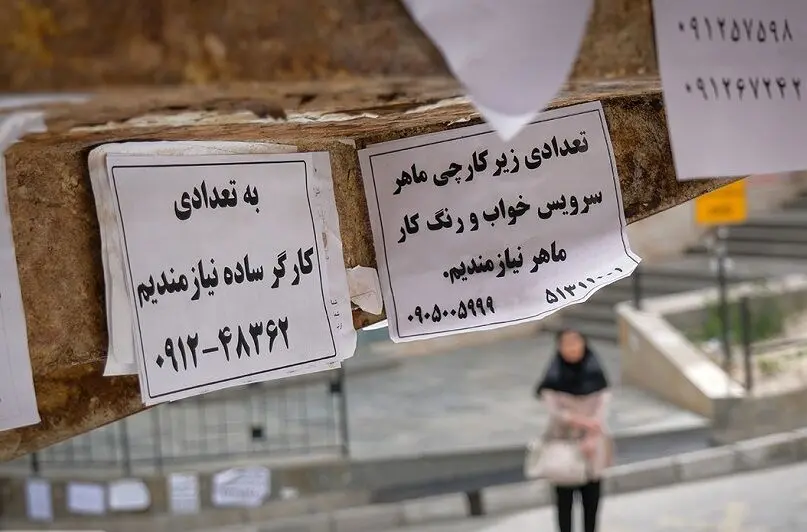 به تعدادی
کارگر ساده نیازمندیم
۰۹۱۲-۴۸۳۶۲
تعدادی زیرکارچی ماهر
سرویس خواب و رنگ کار
ماهر نیازمندیم.
۰۹۰۵۰۰۵۹۹۹
۰۹۱۲۵۷۵۹۸
۰۹۱۲۶۷۲۴۲